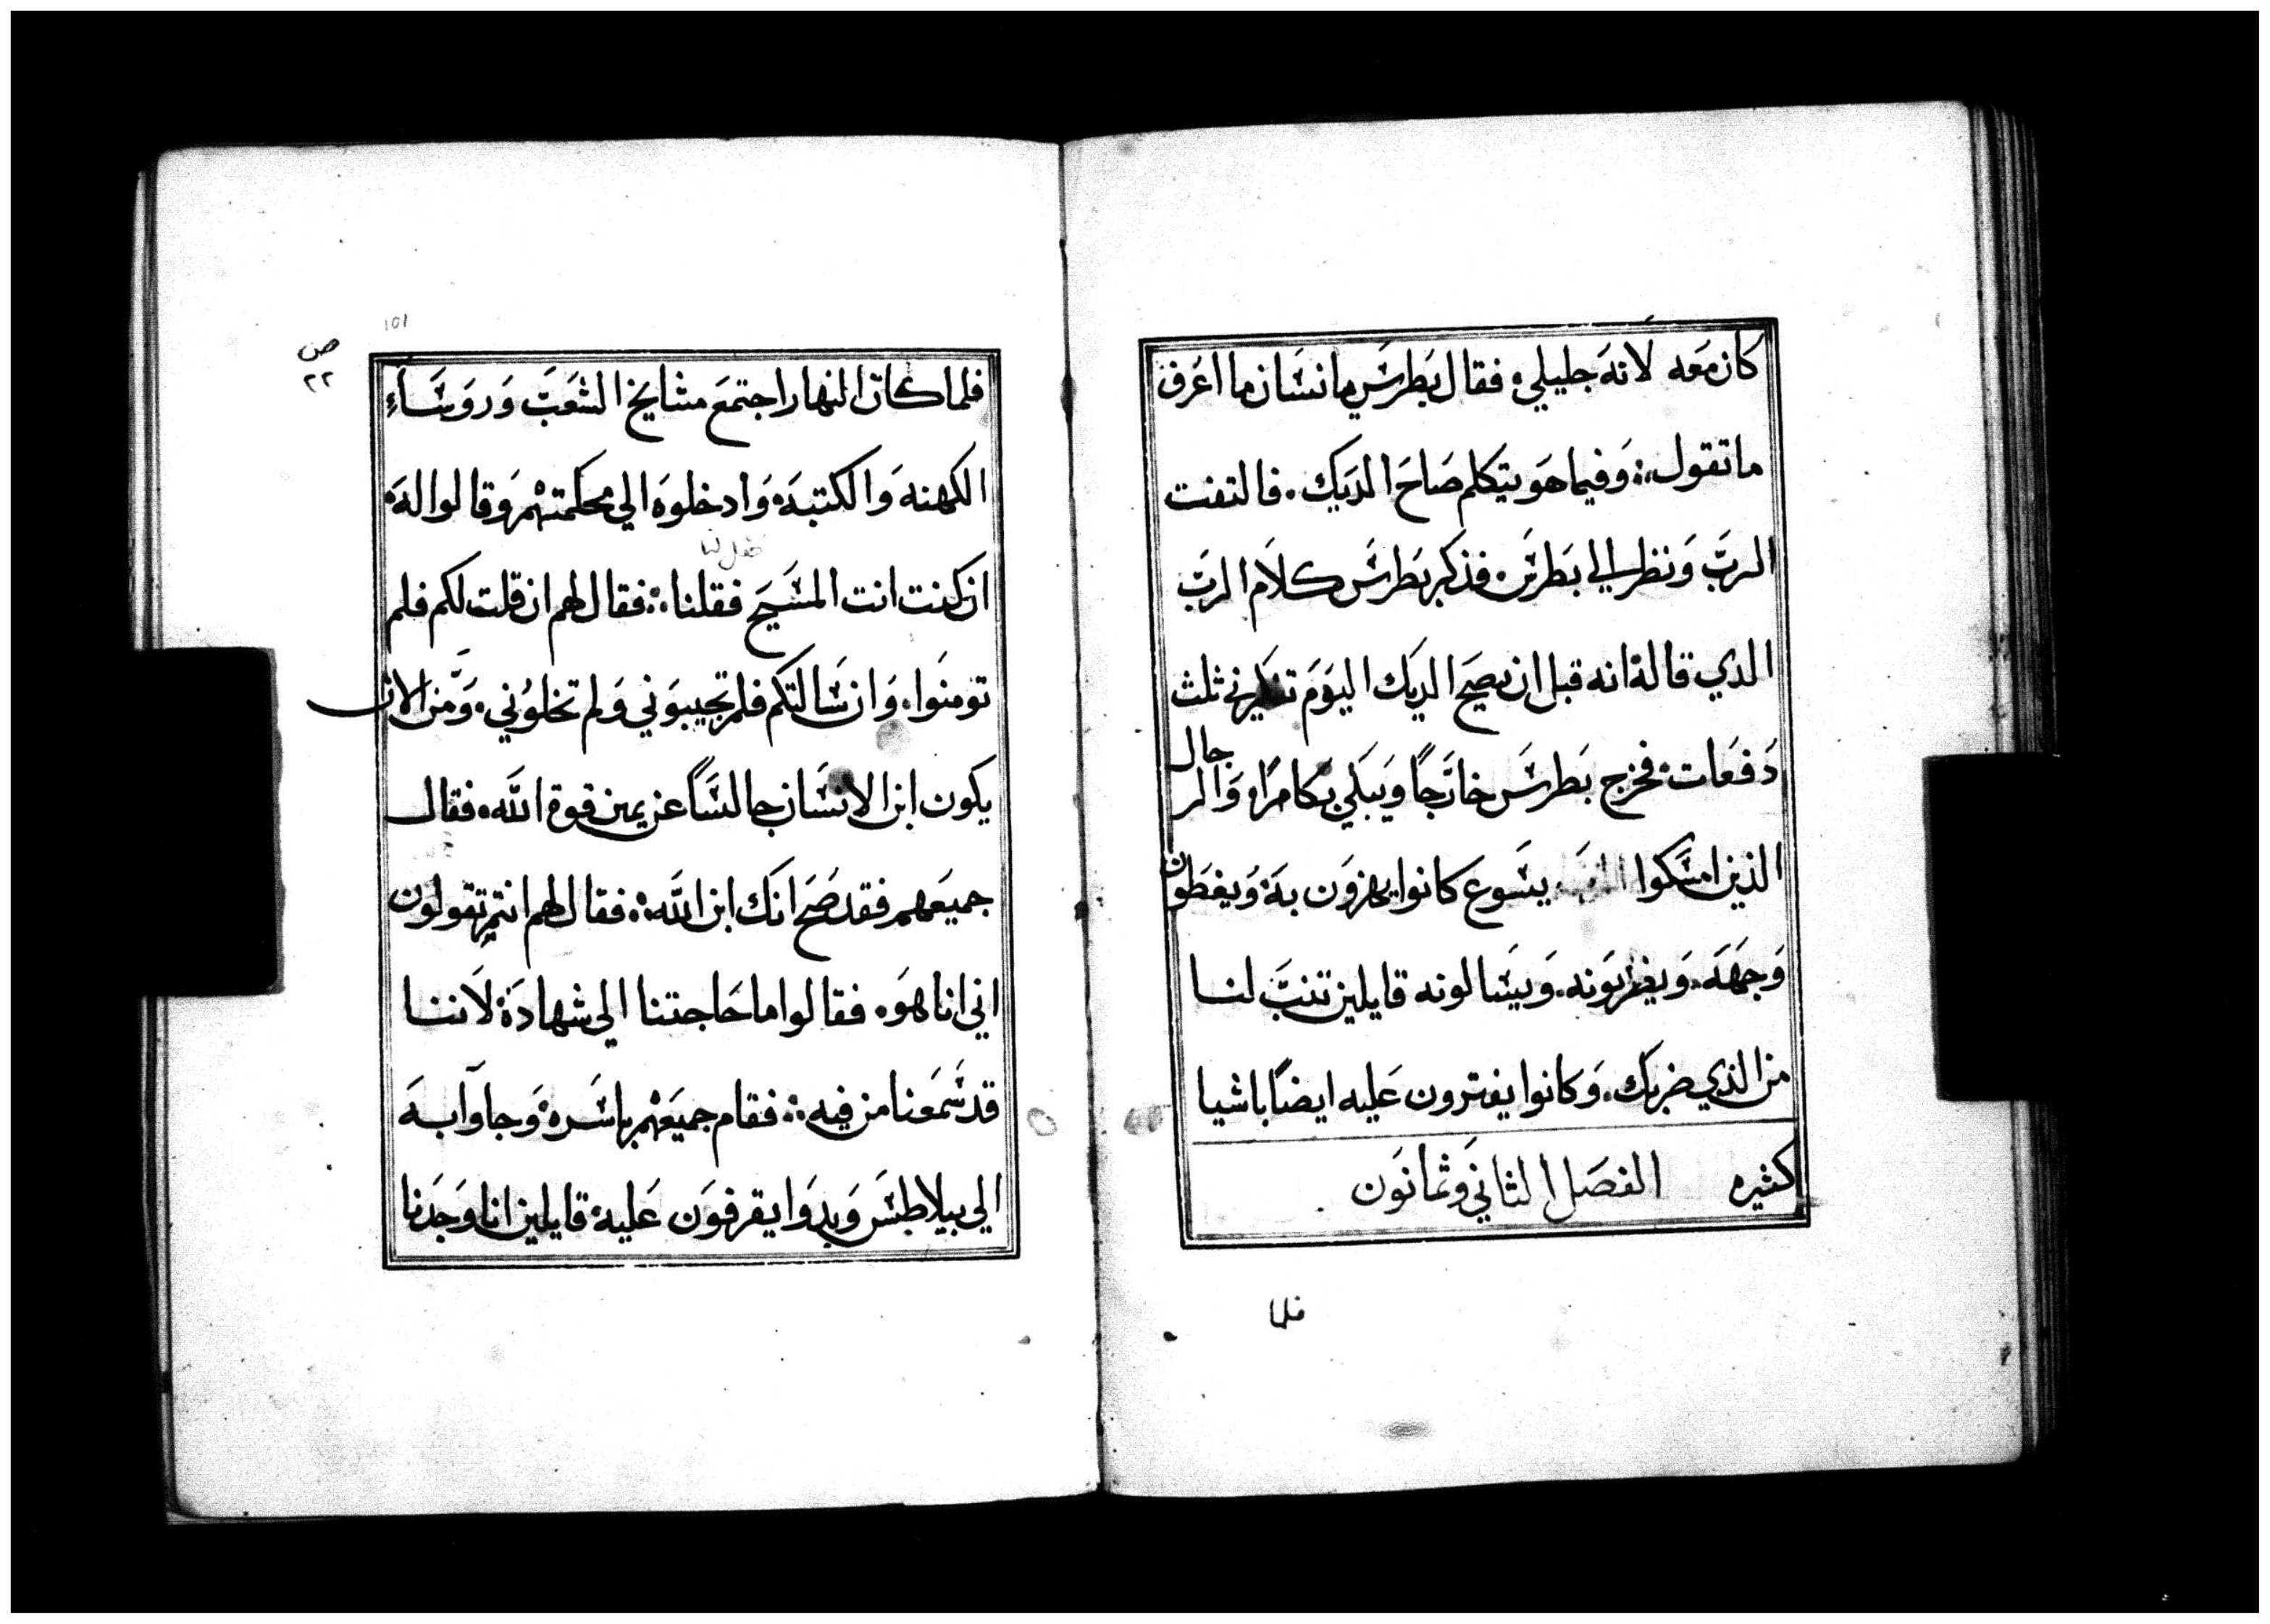 كان معه لانه جليلي. فقال بطرس يا انسان ما اعرف
ما تقول. وفيما هو يتكلم صاح الديك. فالتفت
الرب ونظر الي بطرس. فذكر بطرس كلام الرب
الدي قاله انه قبل ان يصيح الديك اليوم تنكرني ثلث
دفعات. فخرج بطرس خارجًا ويبكي بكا مرا. والرجال
الذين امسكوا يسوع كانوا يهزون به ويغطون
وجهه. ويضربونه. ويسالونه قايلين تنب لنا
من الذي ضربك. وكانوا يفترون عليه ايضًا باشيا
كثيره الفصل الثاني وثمانون
فلما
101
ص
٢٢
فلما كان النهار اجتمع مشايخ الشعب وروساء
الكهنه والكتبه وادخلوه الي محكمتهم وقالوا له
ان كنت انت المسيح فقلنا. فقال لهم ان قلت لكم فلم
تومنوا. وان سالتكم فلم تجيبوني ولم تخلوني. ومن الان
يكون ابن الانسان جالسًا عن يمين قوة الله. فقال
جميعهم فقد صح انك ابن الله. فقال لهم انتم تقولون
اني انا هو. فقالوا ما حاجتنا الي شهادة لاننا
قد سمعنا من فيه. فقام جميعهم باسره وجاوا به
الي بيلاطس وبدوا يقرفون عليه قايلين انا وجدنا